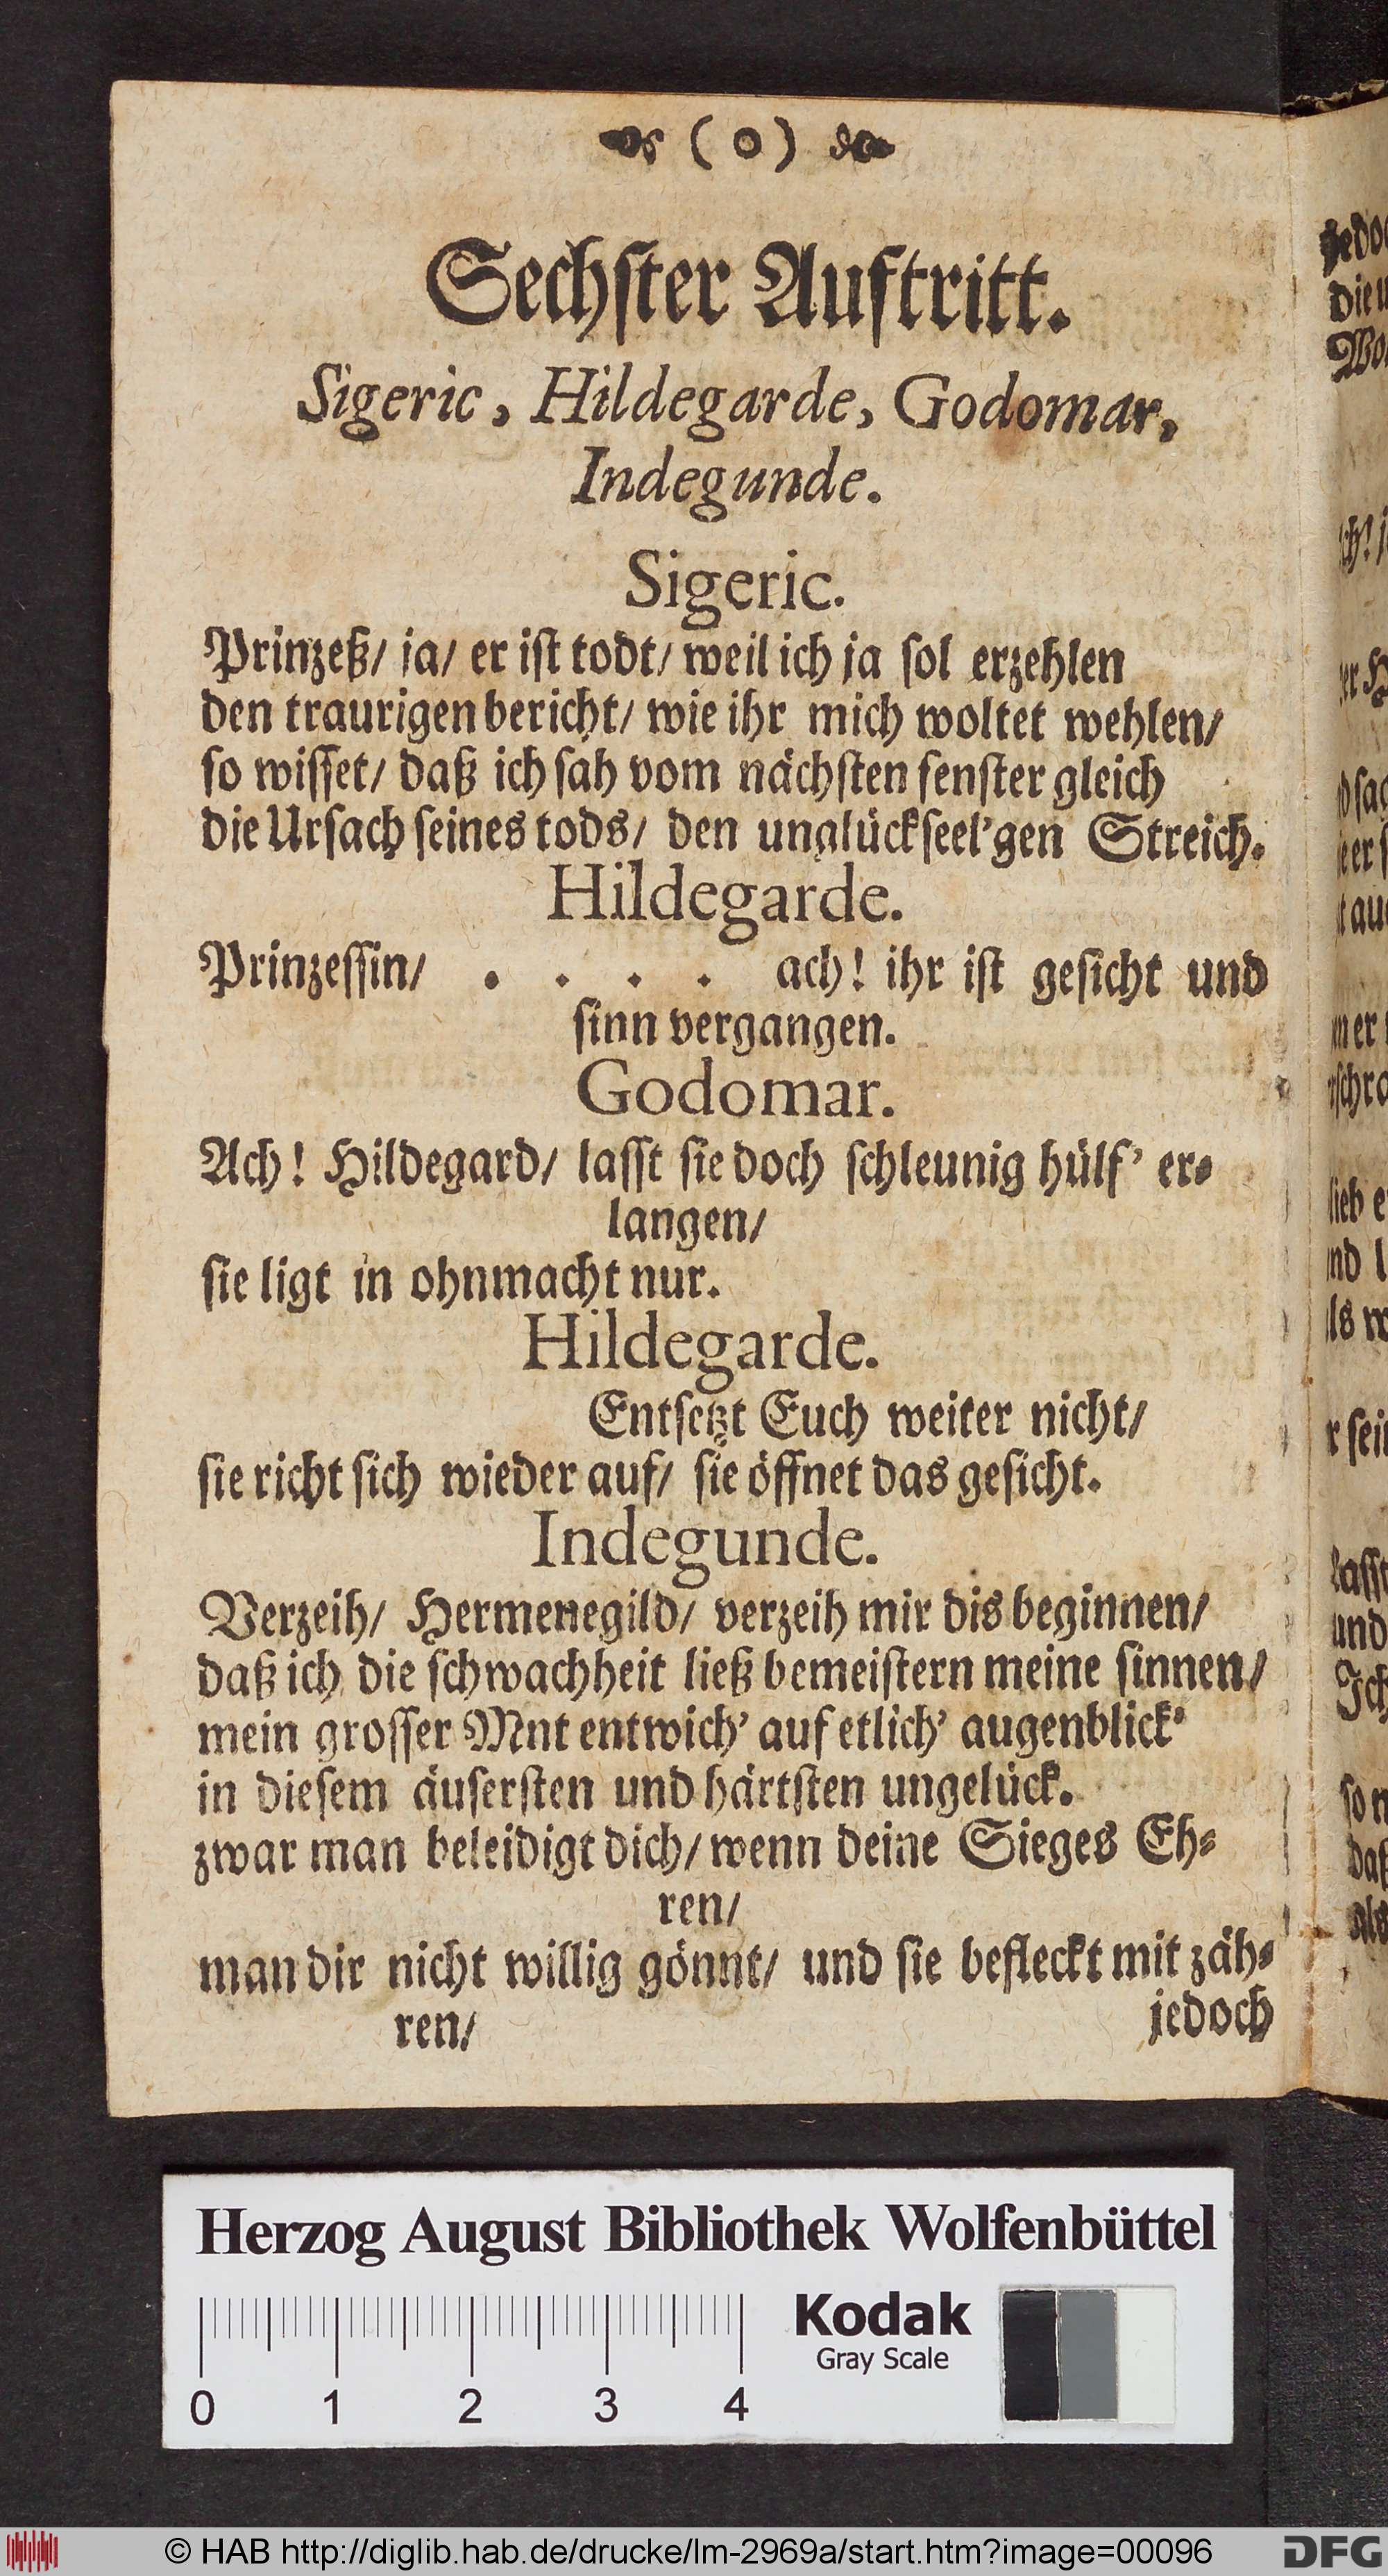 ( o )
Sechster Auftritt.
Sigeric, Hildegarde, Godomar,
Indegunde.
Sigeric.
Prinzeß/ ja/ er ist todt/ weil ich ja sol erzehlen
den traurigen bericht/ wie ihr mich woltet wehlen/
so wisset/ daß ich sah vom nächsten fenster gleich
die Ursach seines tods/ den unglückseel'gen Streich.
Hildegarde.
Prinzessin/ . . . . ach! ihr ist gesicht und
sinn vergangen.
Godomar.
Ach! Hildegard/ lasst sie doch schleunig hülf' er-
langen/
sie ligt in ohnmacht nur.
Hildegarde.
Entsetzt Euch weiter nicht/
sie richt sich wieder auf/ sie öffnet das gesicht.
Indegunde.
Verzeih/ Hermenegild/ verzeih mir dis beginnen/
daß ich die schwachheit ließ bemeistern meine sinnen/
mein grosser Mnt entwich' auf etlich' augenblick'
in diesem äusersten und härtsten ungelück.
zwar man beleidigt dich/ wenn deine Sieges Eh-
ren/
man dir nicht willig gönnt/ und sie befleckt mit zäh-
ren/
jedoch
Herzog August Bibliothek Wolfenbüttel
Kodak
Gray Scale
0 1 2 3 4
© HAB http://diglib.hab.de/drucke/lm-2969a/start.htm?image=00096
DFG